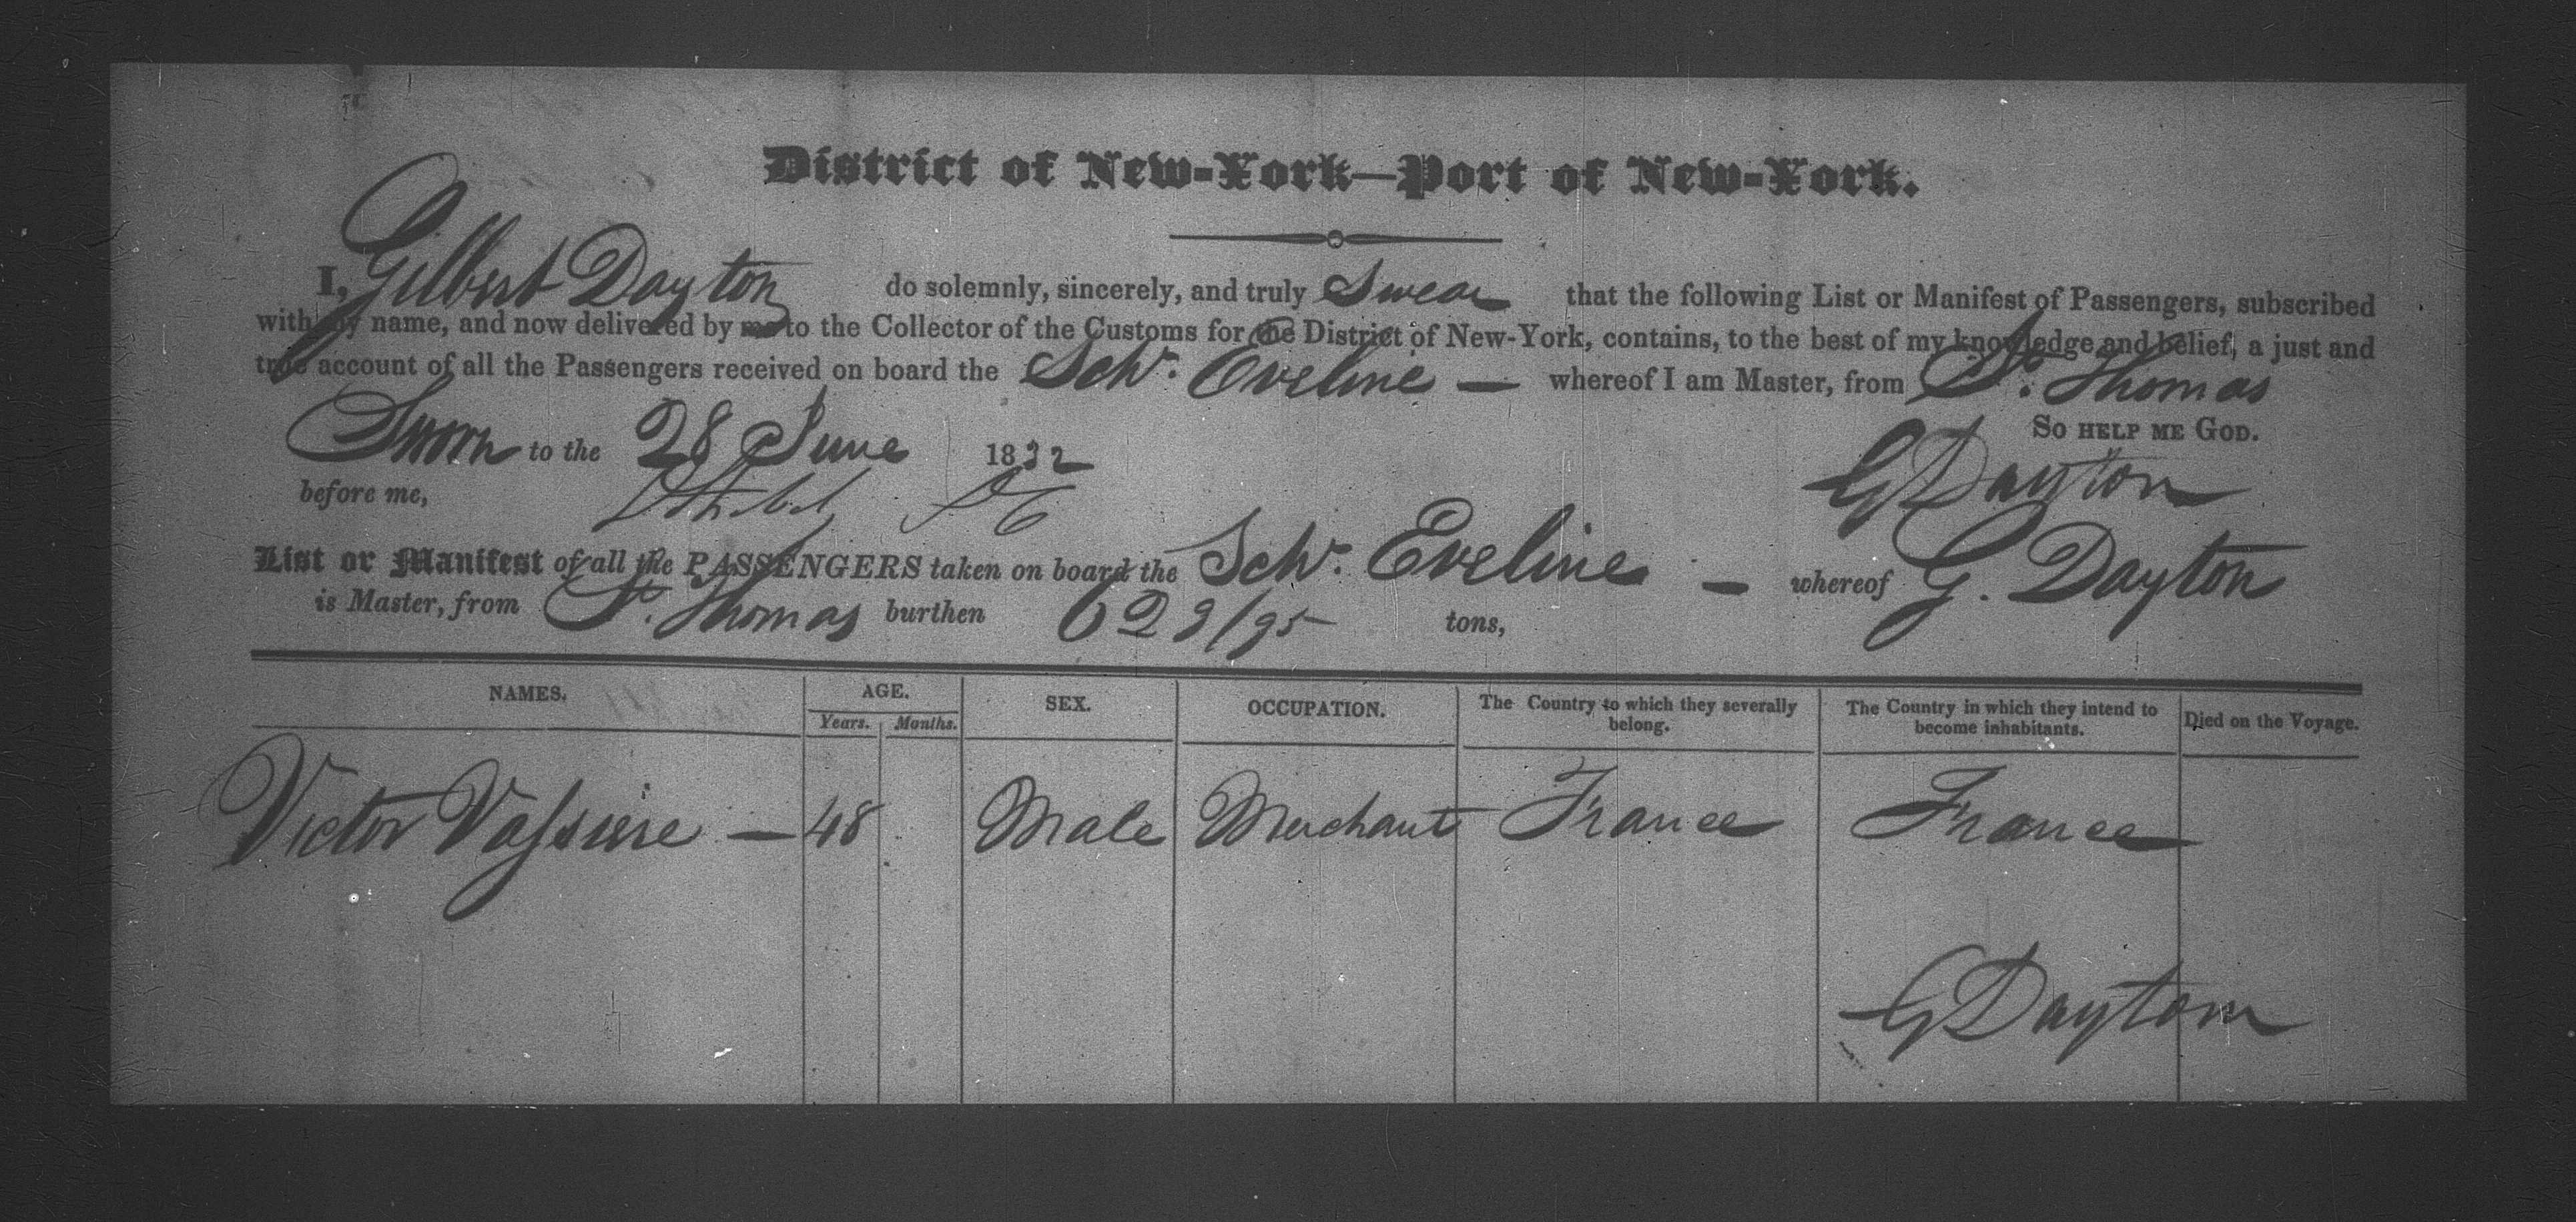 District of New-York—Port of New-York.
I, Gilbert Dayton do solemnly, sincerely, and truly Swear that the following List or Manifest of Passengers, subscribed
with my name, and now delivered by me to the Collector of the Customs for the District of New-York, contains, to the best of my knowledge and belief, a just and
true account of all the Passengers received on board the Schr. Eveline — whereof I am Master, from St. Thomas
So help me God.
Sworn to the 28 June 1832
before me,
G Dayton
List or Manifest of all the PASSENGERS taken on board the Schr. Eveline — whereof G. Dayton
is Master, from St. Thomas burthen 62 9/95 tons,
NAMES. AGE. SEX. OCCUPATION. The Country to which they severally belong. The Country in which they intend to become inhabitants. Died on the Voyage.
Years. Months.
Victor — 48 Male Merchant France France
G Dayton